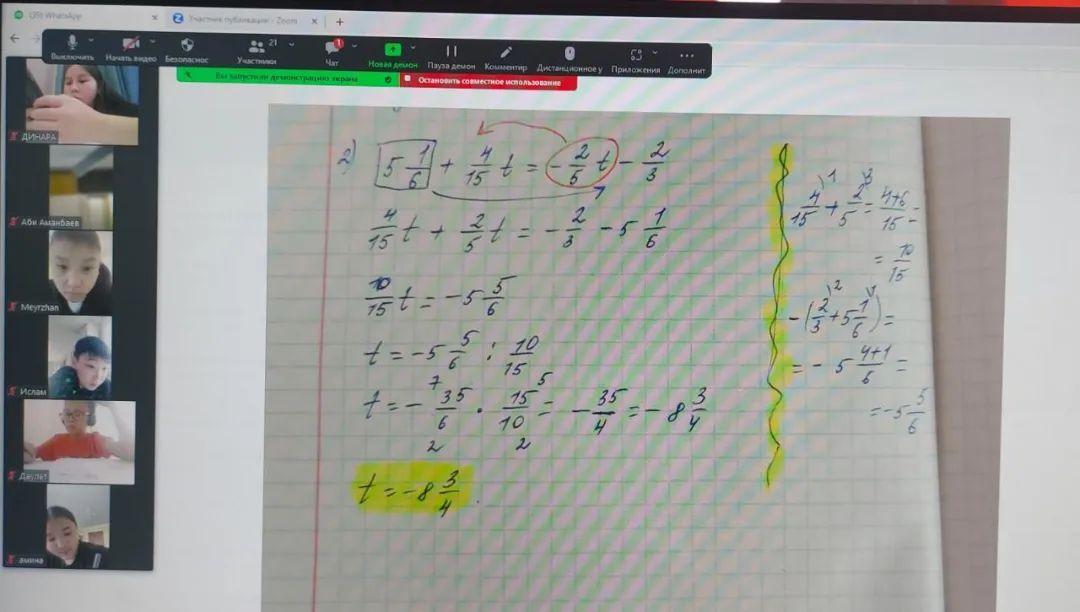 (35) WhatsApp
Участник публикации - Zoom
Выключить
Начать видео
Безопаснос
21
Участники
1
Чат
Новая демон
Пауза демон
Комментир
Дистанционное у
Приложения
Дополнит
Вы запустили демонстрацию экрана
Остановить совместное использование
ДИНАРА
Аби Аманбаев
Meyrzhan
Ислам
Даулет
амина
2) 5 1/6 + 4/15 t = - 2/5 t - 2/3
4/15 t + 2/5 t = - 2/3 - 5 1/6
10/15 t = - 5 5/6
t = - 5 5/6 : 10/15
t = - 35/6 · 15/10 = - 35/4 = - 8 3/4
7 5
2 2
t = - 8 3/4.
4/15 \1 + 2/5 \3 = 4+6/15 =
= 10/15
- (2/3 \2 + 5 1/6 \1) =
= - 5 4+1/6 =
= - 5 5/6